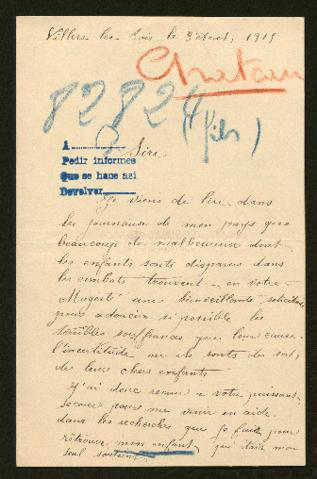 Villers les Bois le 3 Août, 1915
Chateau
8282
(fils)
A
Pedir informes
Que se hace asi
Devolver
Sire
Je viens de lire dans
les journaux de mon pays que
beaucoup de malheureux dont
les enfants sont disparus dans
les combats trouvent en votre
Majesté une bienveillante sollicitude
pour adoucir si possible les
terribles souffrances que leur cause
l'incertitude où ils sont du sort
de leurs chers enfants
J'ai donc recours a votre puissant
secours pour me venir en aide
dans les recherches que je fais pour
retrouver mon enfant qui était mon
seul soutien